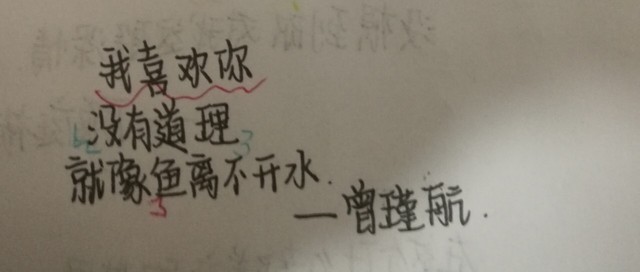 我喜欢你
没有道理
就像鱼离不开水.
—曾瑾航.